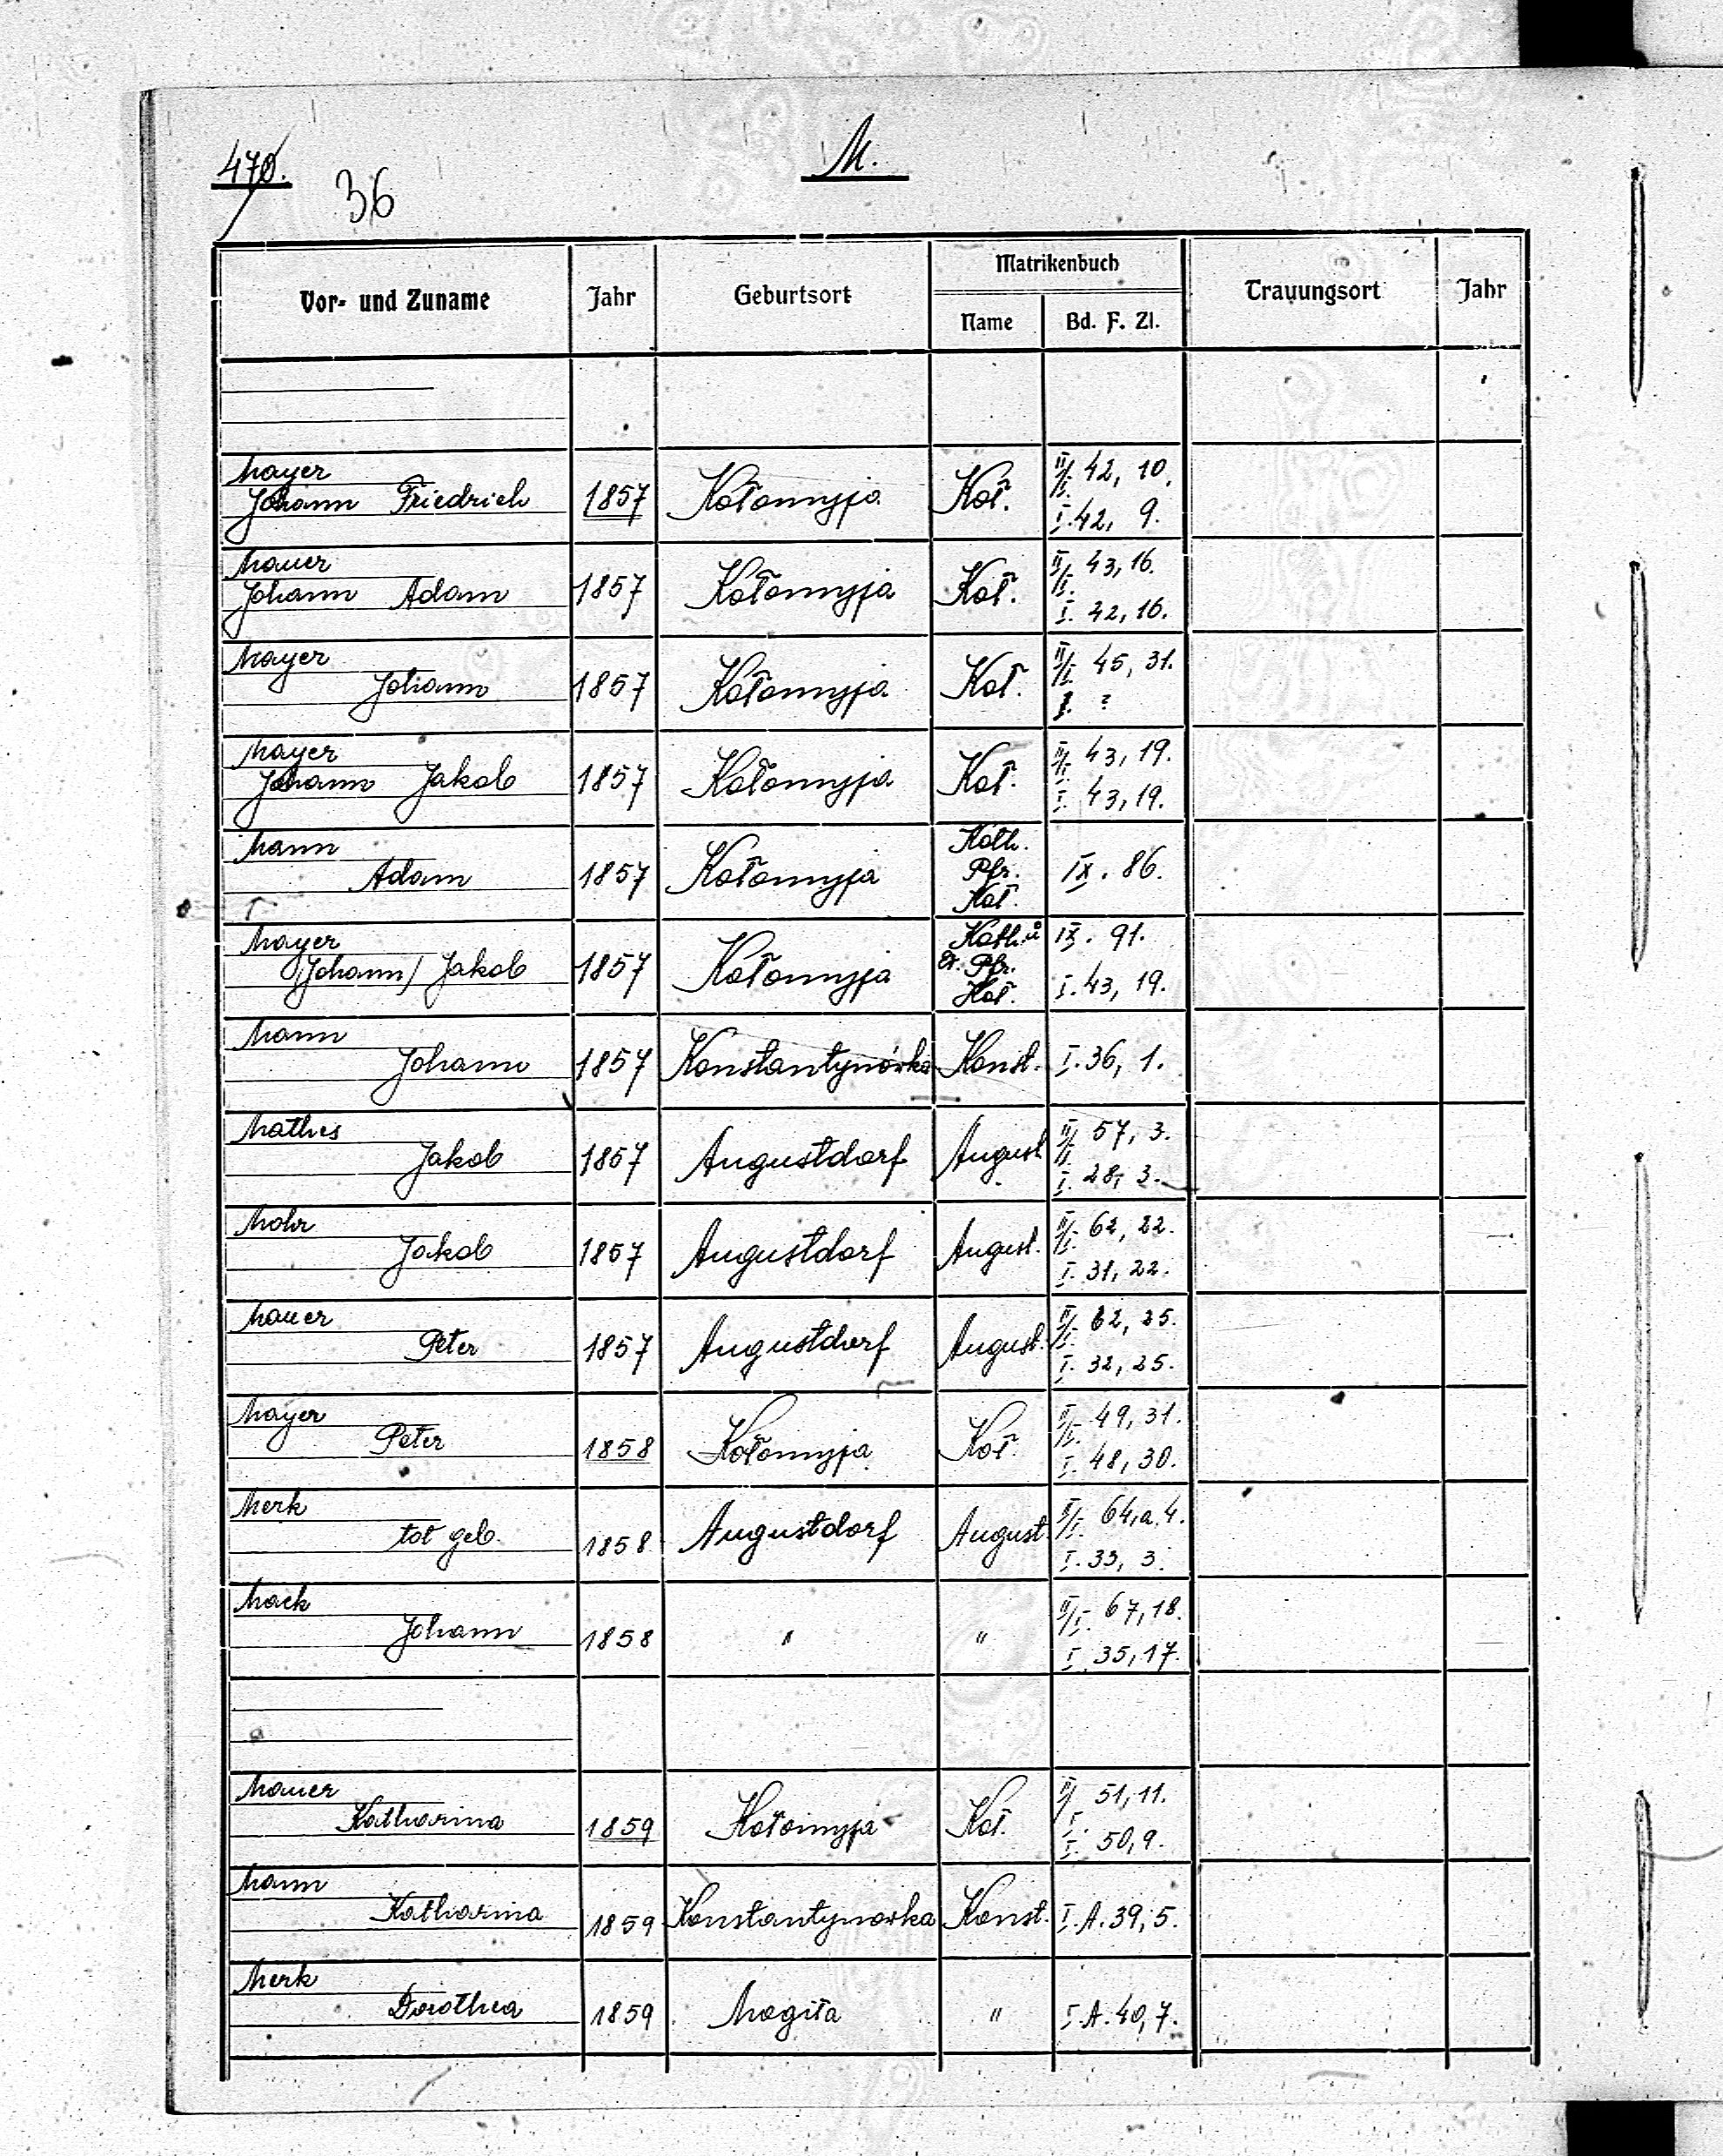 470.
M.
36
Vor- und Zuname
Jahr
Geburtsort
Matrikenbuch
Name
Bd. F. Zl.
Trauungsort
Jahr
Mayer
Johann Friedrich 1857 Kołomyja Koł. II/I. 42, 10.
I. 42, 9.
Mauer
Johann Adam 1857 Kołomyja Koł. II/I. 43, 16.
I. 42, 16.
Mayer
Johann 1857 Kołomyja Koł. II/I. 45, 31.
I. ?
Mayer
Johann Jakob 1857 Kołomyja Koł. II/I. 43, 19.
I. 43, 19.
Mann
Adam 1857 Kołomyja Kath. Pfr. Koł. IX. 86.
Mayer
(Johann) Jakob 1857 Kołomyja Kath. u. Pfr. Koł. IX. 91.
I. 43, 19.
Mann
Johann 1857 Konstantynówka Konst. I. 36, 1.
Mathes
Jakob 1857 Augustdorf August II/I. 57, 3.
I. 28, 3.
Mohr
Jakob 1857 Augustdorf August. II/I. 62, 22.
I. 31, 22.
Mauer
Peter 1857 Augustdorf August. II/I. 62, 25.
I. 32, 25.
Mayer
Peter 1858 Kołomyja Koł. II/I. 49, 31.
I. 48, 30.
Merk
tot geb. 1858 Augustdorf August II/I. 64, a. 4.
I. 33, 3.
Mack
Johann 1858 " " II/I. 67, 18.
I. 35, 17.
Mauer
Katharina 1859 Kołomyja Koł. II/I. 51, 11.
I. 50, 9.
Mann
Katharina 1859 Konstantynowka Konst. I. A. 39, 5.
Merk
Dorothea 1859 Mogiła " I. A. 40, 7.